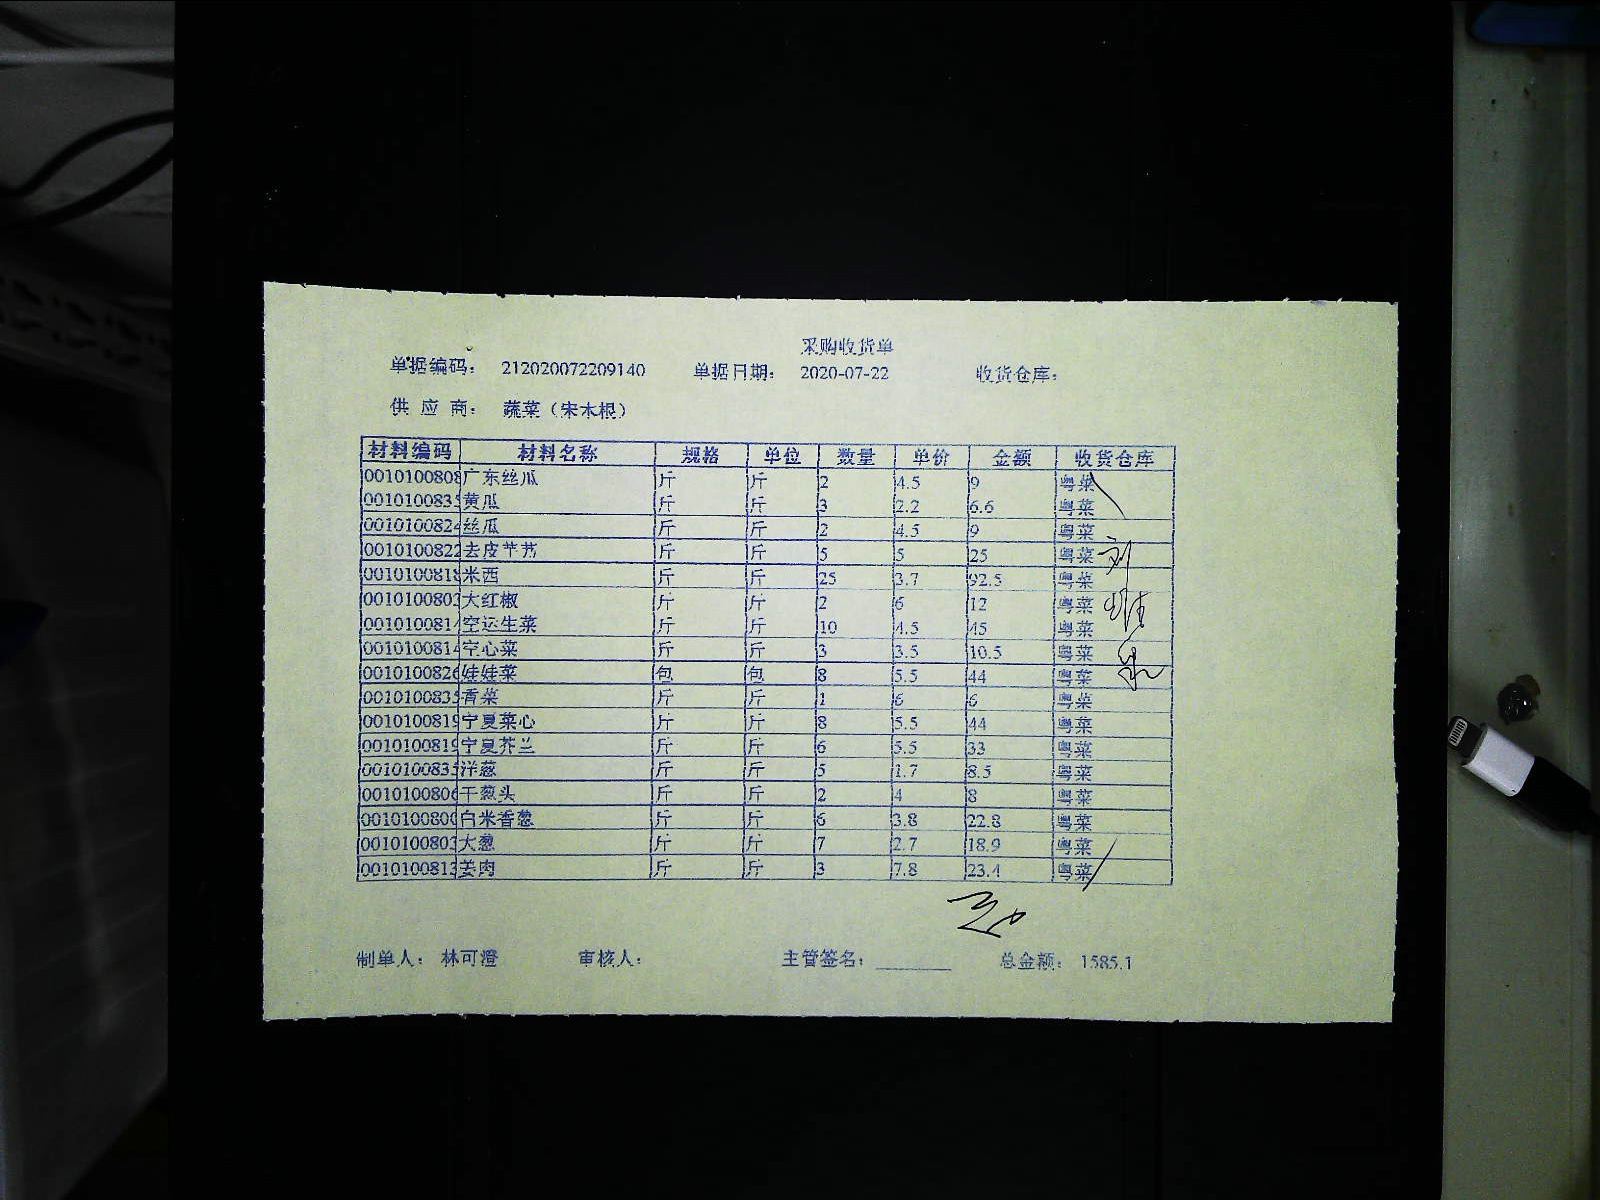 采购收货单
单据编码： 212020072209140 单据日期： 2020-07-22 收货仓库：
供 应 商： 蔬菜（宋本根）
材料编码 材料名称 规格 单位 数量 单价 金额 收货仓库
0010100808 广东丝瓜 斤 斤 2 4.5 9 粤菜
001010083 黄瓜 斤 斤 3 2.2 6.6 粤菜
001010082 丝瓜 斤 斤 2 4.5 9 粤菜
0010100822 去皮芋艿 斤 斤 5 5 25 粤菜
001010081 米西 斤 斤 25 3.7 92.5 粤菜
001010080 大红椒 斤 斤 2 6 12 粤菜
001010081 空运生菜 斤 斤 10 4.5 45 粤菜
001010081 空心菜 斤 斤 3 3.5 10.5 粤菜
001010082 娃娃菜 包 包 8 5.5 44 粤菜
001010083 香菜 斤 斤 1 6 6 粤菜
001010081 宁夏菜心 斤 斤 8 5.5 44 粤菜
001010081 宁夏芥兰 斤 斤 6 5.5 33 粤菜
001010083 洋葱 斤 斤 5 1.7 8.5 粤菜
001010080 干葱头 斤 斤 2 4 8 粤菜
001010080 白米香葱 斤 斤 6 3.8 22.8 粤菜
001010080 大葱 斤 斤 7 2.7 18.9 粤菜
001010081 姜肉 斤 斤 3 7.8 23.4 粤菜
制单人： 林可澄 审核人： 主管签名： 总金额： 1585.1